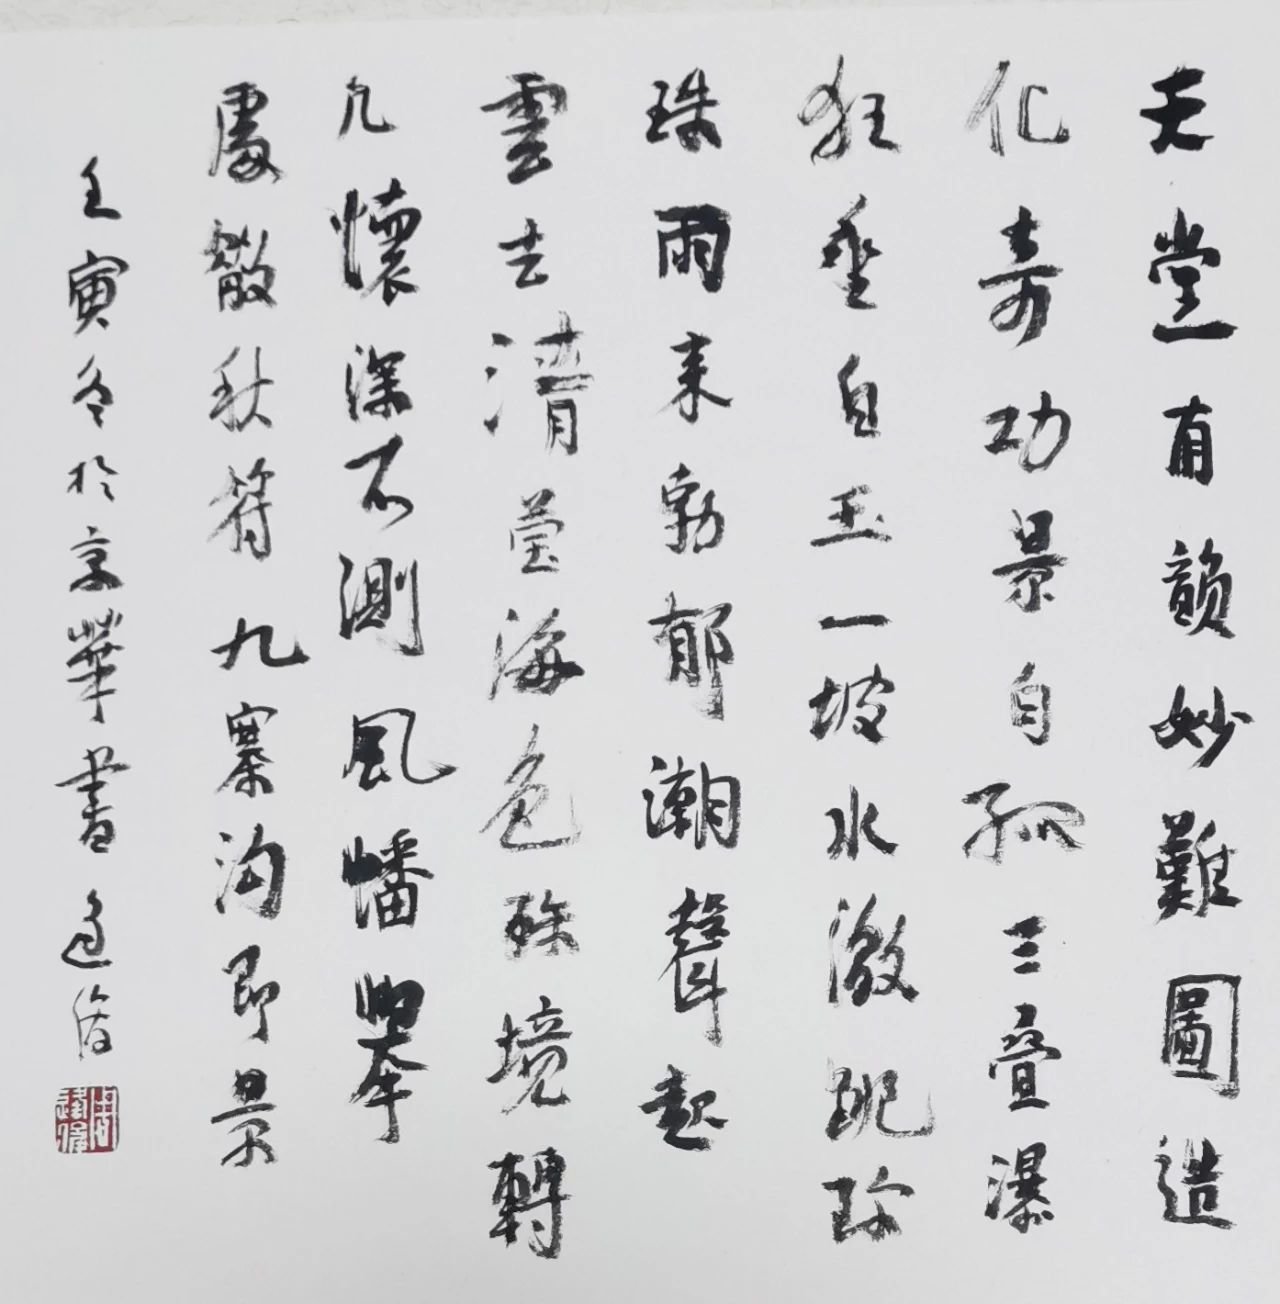 天堂有韻妙難圖造
化奇功景自孤三叠瀑
狂垂白玉一坡水激跳珍
珠雨来勃郁潮聲起
雲去清瑩海色殊境轉
凡懷深不測風幡舉
處散秋符九寨溝即景
壬寅冬於京華書建俊